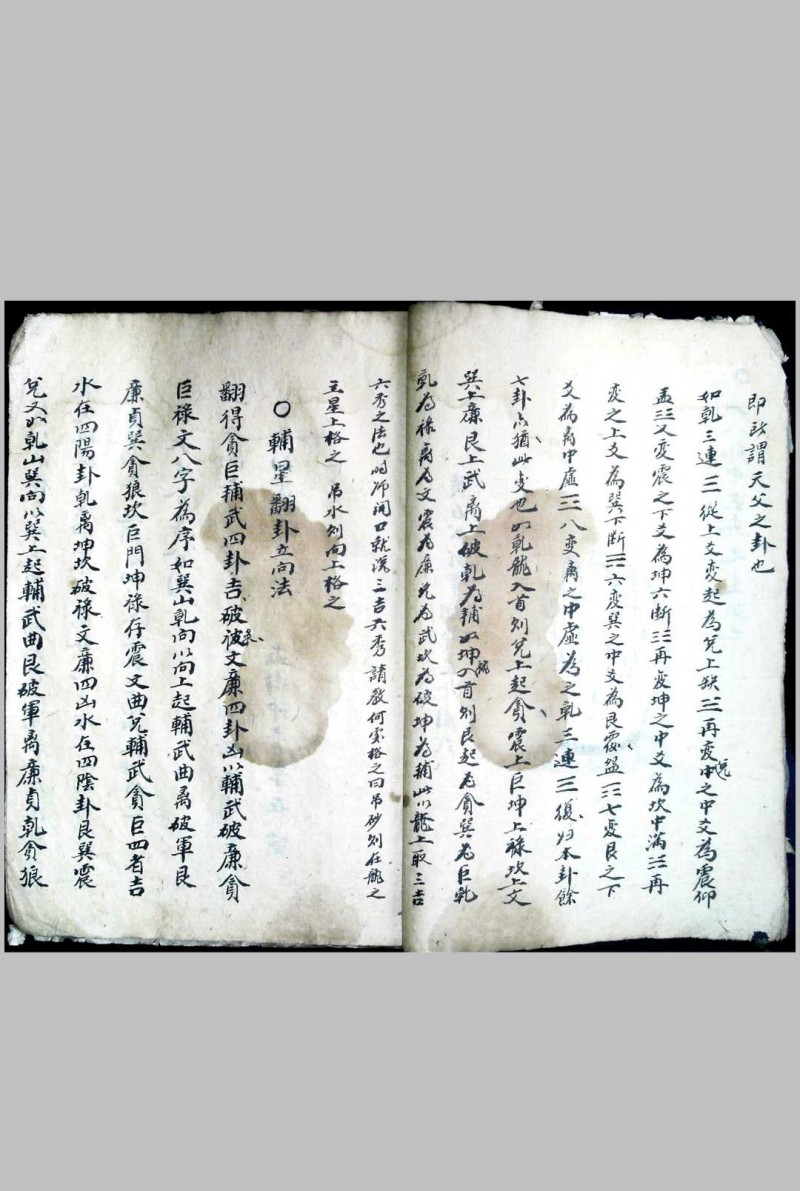 即所謂天父之卦也
如乾三連☰從上爻變起為兌上缺☱再變兌之中爻為震仰
盂☳又變震之下爻為坤六断☷再变坤之中爻為坎中满☵再
变之上爻為巽下断☴六变巽之中爻為艮覆盌☶七变艮之下
爻為离中虛☲八变离之中虛為之乾三連☰復归本卦餘
七卦亦猶此变也如乾龍入首则兌上起貪震上巨坤上禄坎上文
巽上廉艮上武离上破乾為辅如坤龍入首则艮起為貪巽為巨乾
乹為禄离為文震為廉兌為武坎為破坤為辅此以龍上取三吉
六秀之法也時师開口就說三吉六秀請教何穷格之曰吊砂则在龍之
主星上格之 吊水则向上格之
○輔星翻卦立向法
翻得貪巨辅武四卦吉破禄文廉四卦凶以輔武破廉貪
巨禄文八字為序如巽山乾向以向上起輔武曲离破軍艮
廉貞巽貪狼坎巨門坤禄存震文曲兌輔武貪巨四者吉
水在四陽卦乾离坤坎破禄文廉四凶水在四陰卦艮巽震
兌又如乾山巽向以巽上起輔武曲艮破軍离廉貞乾貪狼